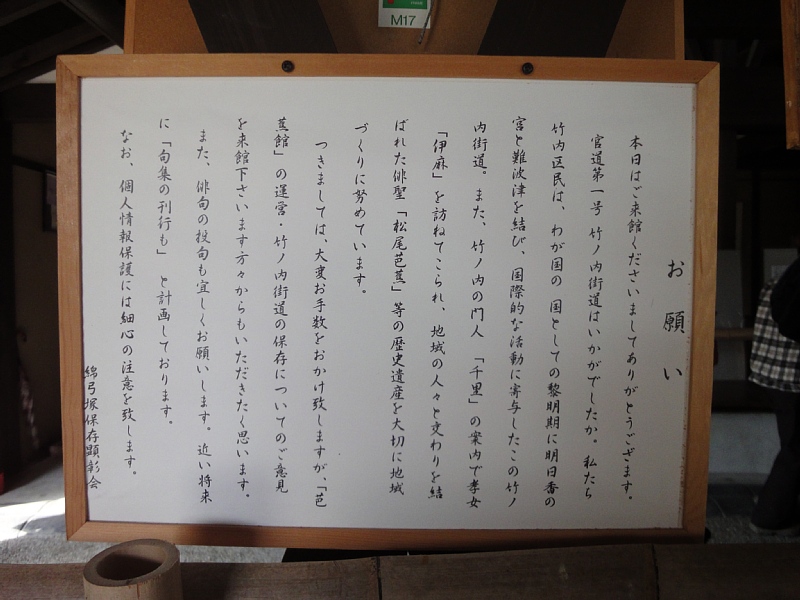 M17
お願い
本日はご来館くださいましてありがとうございます。
官道第一号 竹ノ内街道はいかがでしたか。私たち
竹内区民は、わが国の 国としての黎明期に明日香の
宮と難波津を結び、国際的な活動に寄与したこの竹ノ
内街道。また、竹ノ内の門人 「千里」の案内で孝女
「伊麻」を訪ねてこられ、地域の人々と交わりを結
ばれた俳聖「松尾芭蕉」等の歴史遺産を大切に地域
づくりに努めています。
つきましては、大変お手数をおかけ致しますが、「芭
蕉館」の運営・竹ノ内街道の保存についてのご意見
を来館下さいます方々からもいただきたく思います。
また、俳句の投句も宜しくお願いします。近い将来
に「句集の刊行も」 と計画しております。
なお、個人情報保護には細心の注意を致します。
綿弓塚保存顕彰会